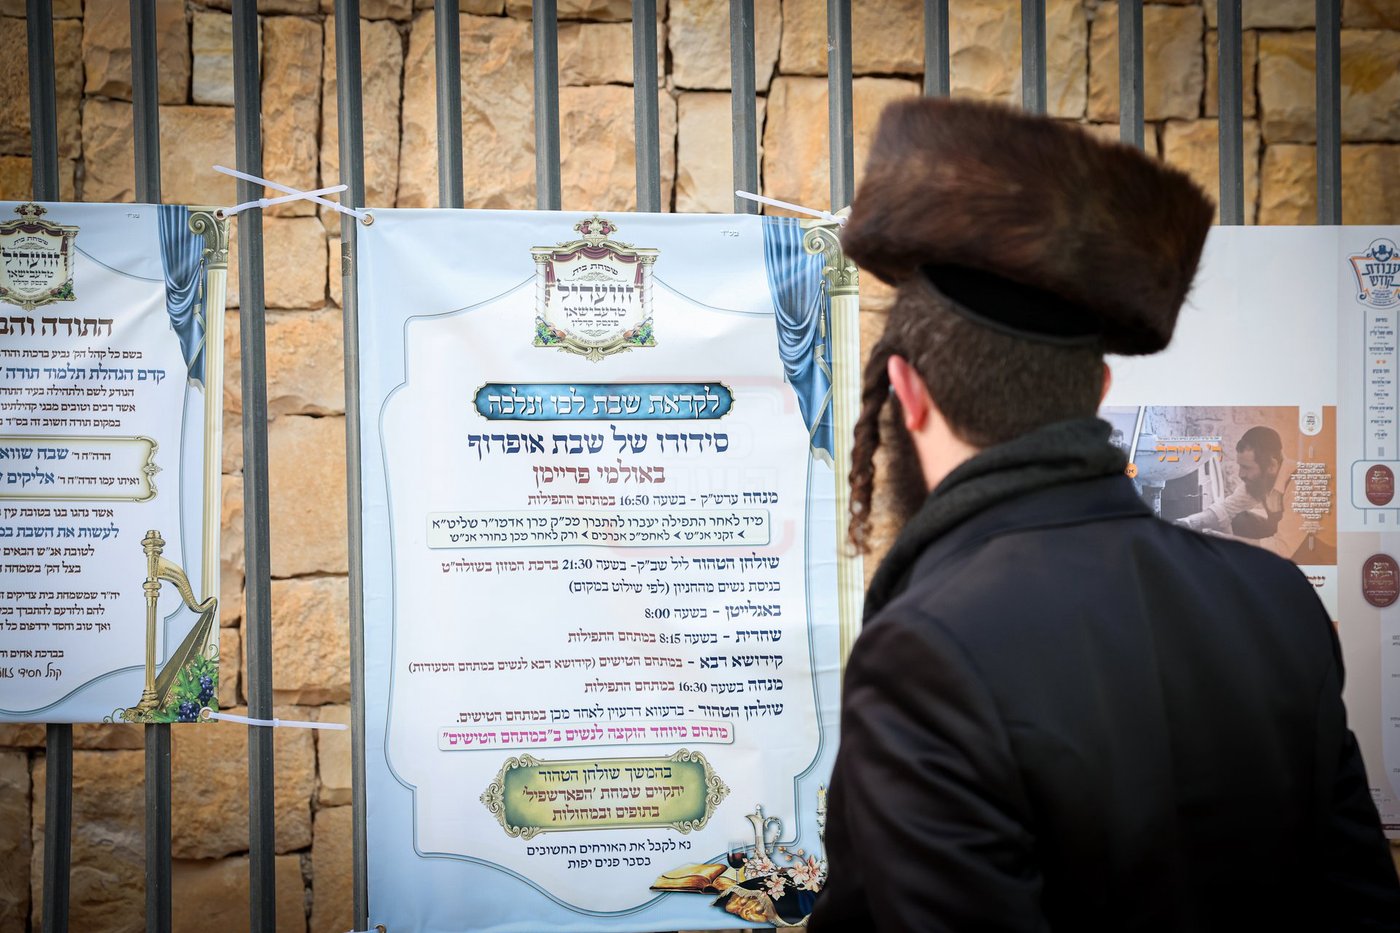 התודה והב
בשם כל קהל הק' נביע ברכות והוד
קדם הנהלת תלמוד תורה
הנודע לשם ולתהילה בעיר התורה
אשר רבים וטובים מבני קהילתינו
במקום תורה חשוב זה בס"ד
הרה"ח ר' שבח שווא
ואיתו עמו הרה"ח ר' אליקים
אשר נהגו בנו בטובת עין
לעשות את השבת במ
לטובת אנ"ש הבאים
בצל הק' בשמחה
יה"ר שמשמחת בית צדיקים
להם ולזרעם להתברך בכל
ואך טוב וחסד ירדפום כל
בברכת אחים
קהל חסידי זוו
בס"ד
שמחת בית
זוועהיל
טרעבישאן
פינסק קרלין
לקראת שבת לכו ונלכה
סידורו של שבת אופרוף
באולמי פריימן
מנחה ערש"ק - בשעה 16:50 במתחם התפילות
מיד לאחר התפילה יעברו להתברך מכ"ק מרן אדמו"ר שליט"א
זקני אנ"ש לאחמ"כ אברכים ורק לאחר מכן בחורי אנ"ש
שולחן הטהור ליל שב"ק- בשעה 21:30 ברכת המזון בשולה"ט
כניסת נשים מהחניון (לפי שילוט במקום)
באגלייטן - בשעה 8:00
שחרית - בשעה 8:15 במתחם התפילות
קידושא רבא - במתחם הטישים (קידושא רבא לנשים במתחם הסעודות)
מנחה בשעה 16:30 במתחם התפילות
שולחן הטהור - ברעווא דרעוין לאחר מכן במתחם הטישים.
מתחם מיוחד הוקצה לנשים ב"במתחם הטישים"
בהמשך שולחן הטהור
יתקיים שמחת 'הפארשפיל'
בתופים ובמחולות
נא לקבל את האורחים החשובים
בסבר פנים יפות
עבודת
קודש
ר' לייבל